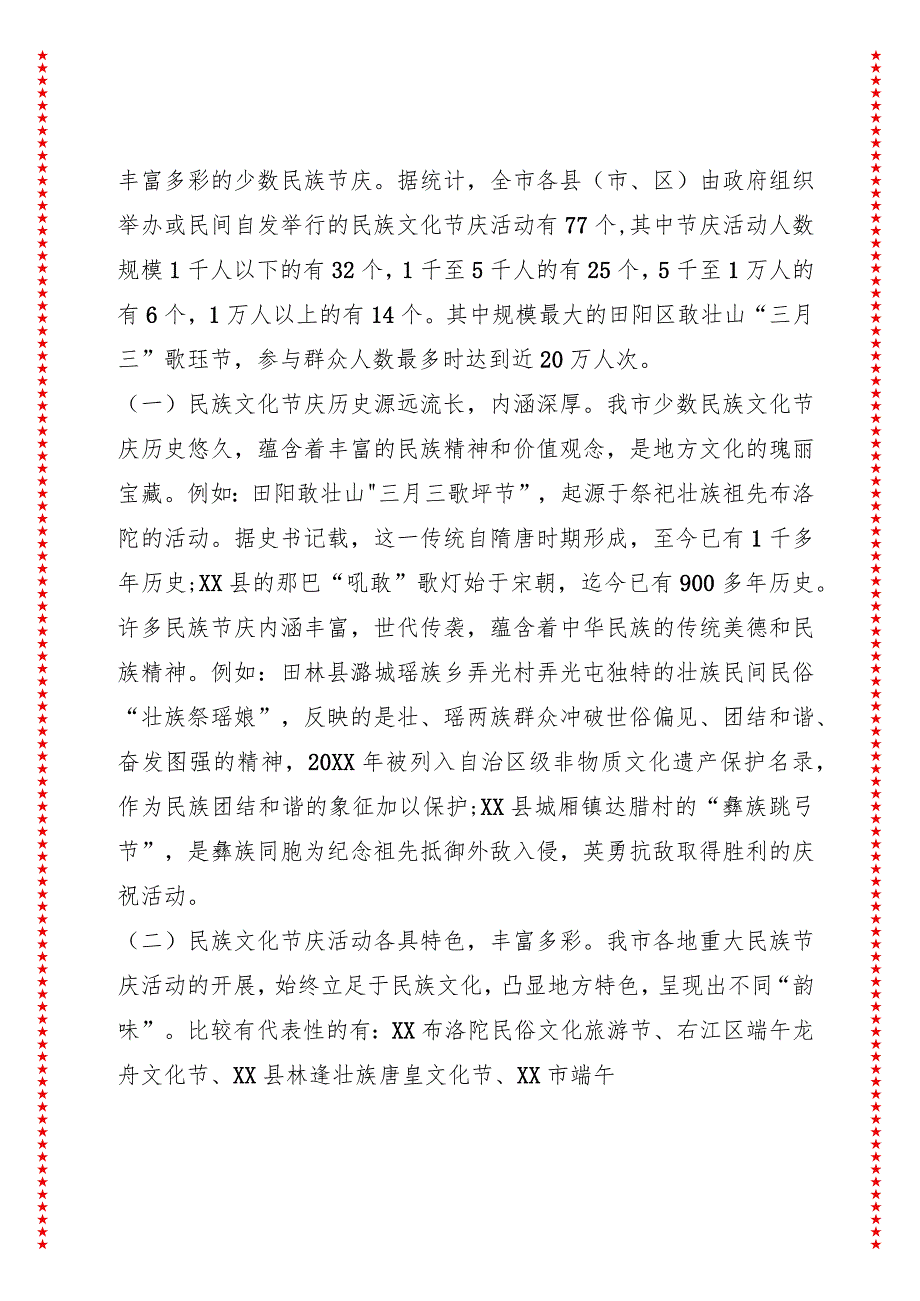 丰富多彩的少数民族节庆。据统计，全市各县（市、区）由政府组织
举办或民间自发举行的民族文化节庆活动有 77 个,其中节庆活动人数
规模 1 千人以下的有 32 个，1 千至 5 千人的有 25 个，5 千至 1 万人的
有 6 个，1 万人以上的有 14 个。其中规模最大的田阳区敢壮山“三月
三”歌珏节，参与群众人数最多时达到近 20 万人次。
（一）民族文化节庆历史源远流长，内涵深厚。我市少数民族文化节
庆历史悠久，蕴含着丰富的民族精神和价值观念，是地方文化的瑰丽
宝藏。例如：田阳敢壮山"三月三歌坪节”，起源于祭祀壮族祖先布洛
陀的活动。据史书记载，这一传统自隋唐时期形成，至今已有 1 千多
年历史;XX 县的那巴“吼敢”歌灯始于宋朝，迄今已有 900 多年历史。
许多民族节庆内涵丰富，世代传袭，蕴含着中华民族的传统美德和民
族精神。例如：田林县潞城瑶族乡弄光村弄光屯独特的壮族民间民俗
“壮族祭瑶娘”，反映的是壮、瑶两族群众冲破世俗偏见、团结和谐、
奋发图强的精神，20XX 年被列入自治区级非物质文化遗产保护名录，
作为民族团结和谐的象征加以保护;XX 县城厢镇达腊村的“彝族跳弓
节”，是彝族同胞为纪念祖先抵御外敌入侵，英勇抗敌取得胜利的庆
祝活动。
（二）民族文化节庆活动各具特色，丰富多彩。我市各地重大民族节
庆活动的开展，始终立足于民族文化，凸显地方特色，呈现出不同“韵
味”。比较有代表性的有：XX 布洛陀民俗文化旅游节、右江区端午龙
舟文化节、XX 县林逢壮族唐皇文化节、XX 市端午